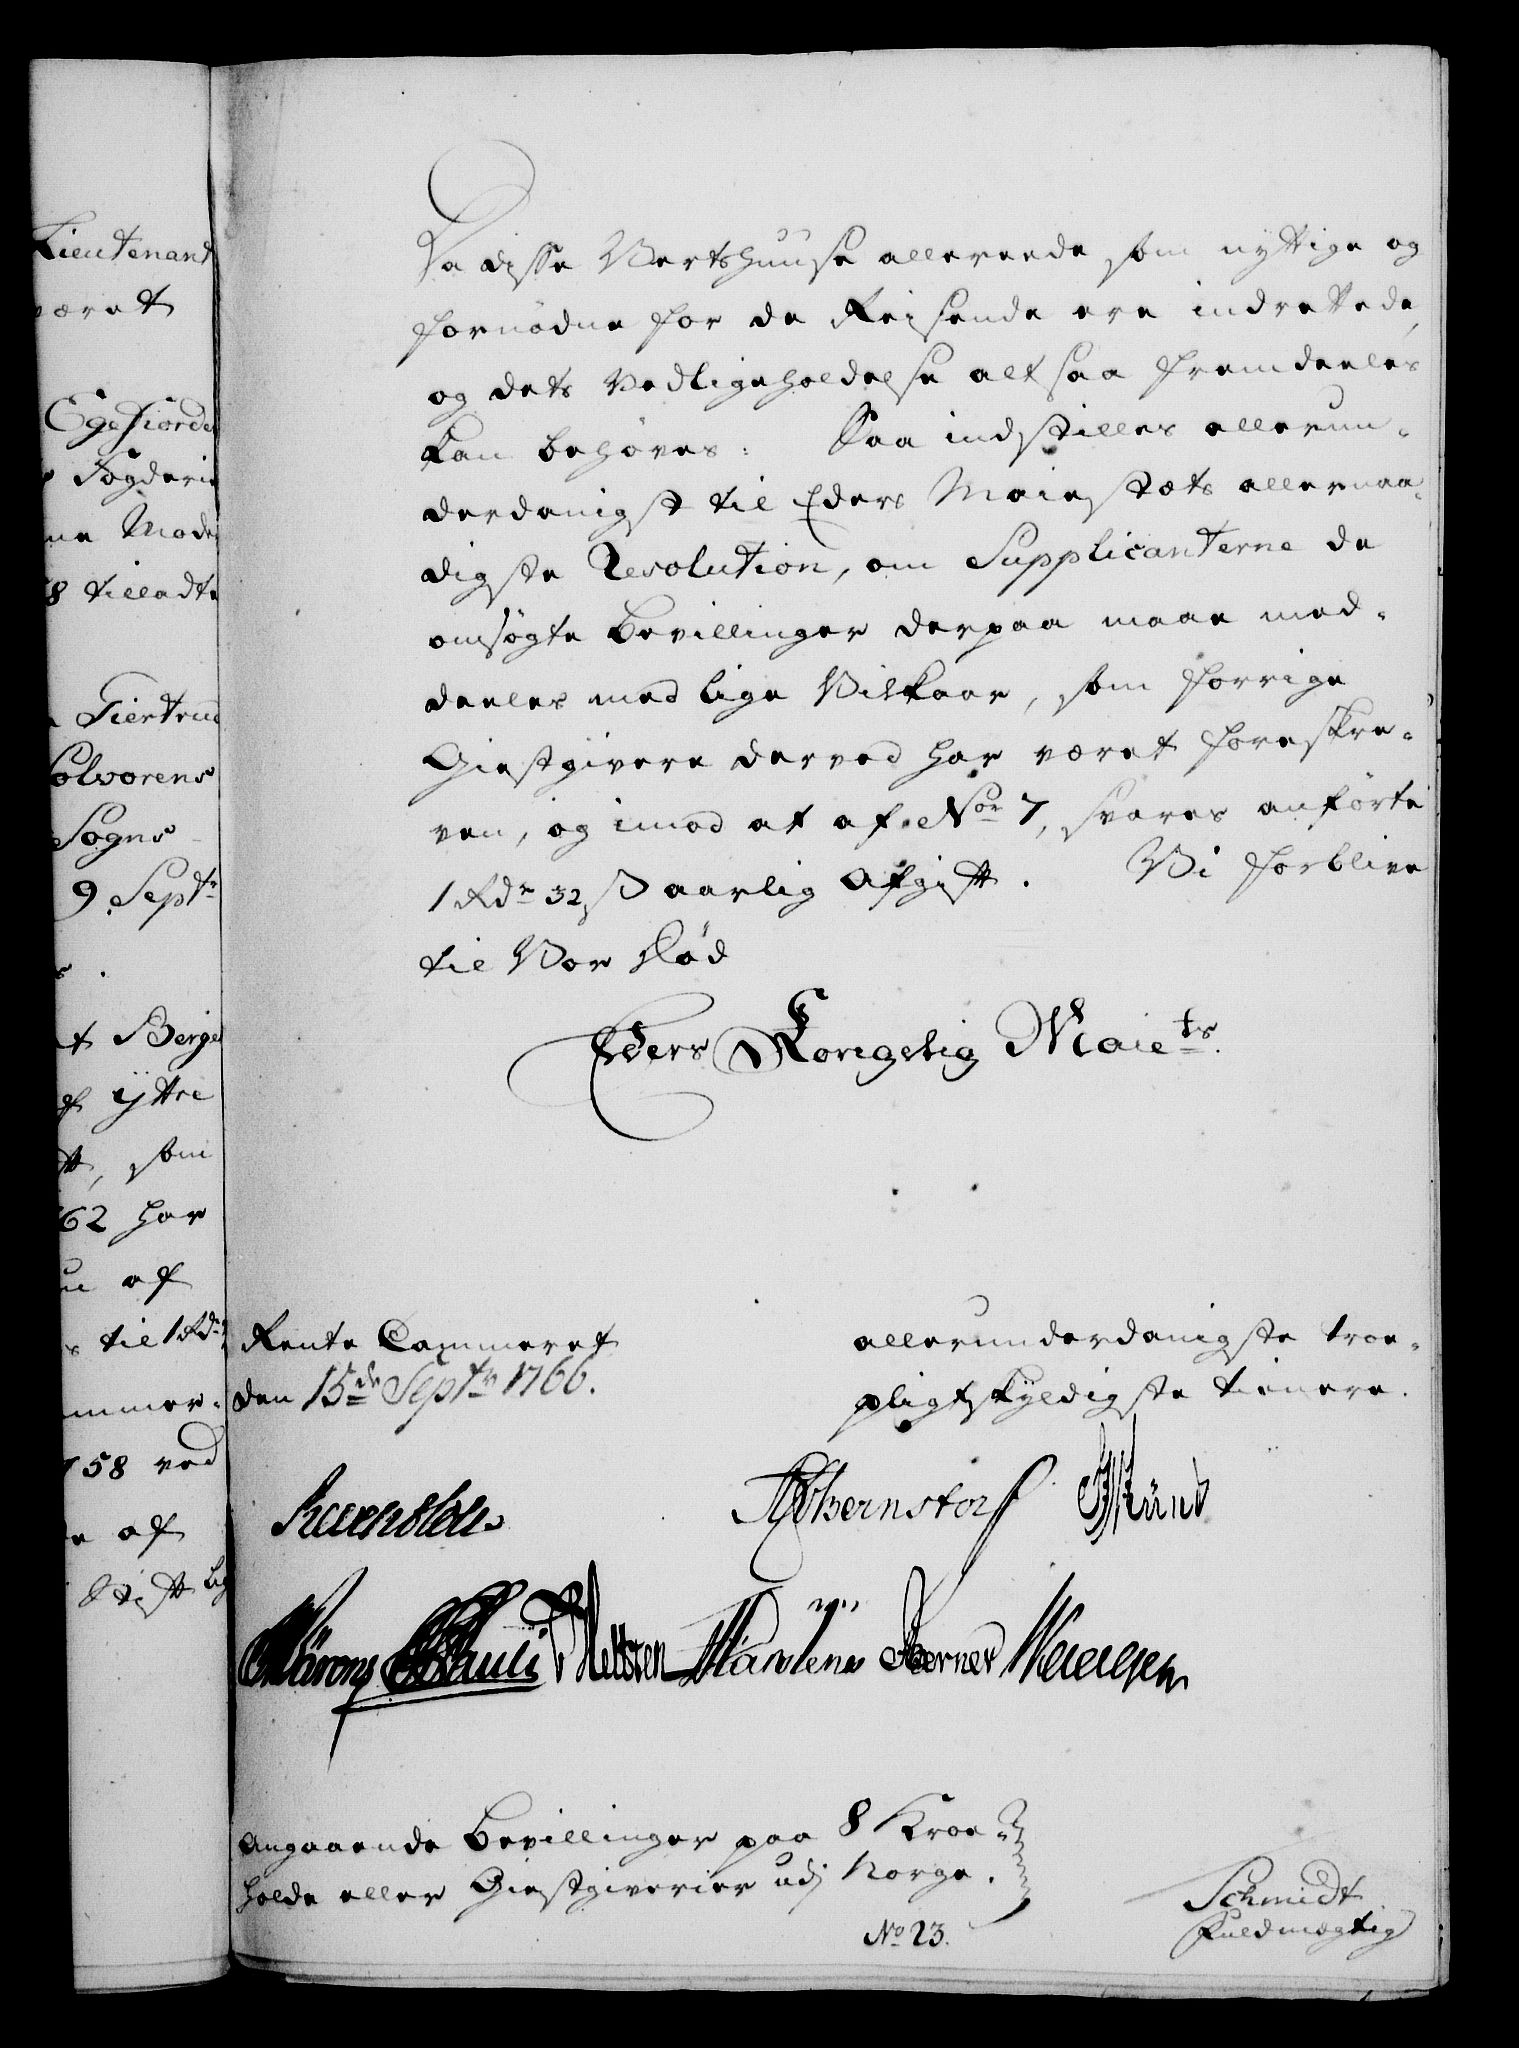 Lieutenant
været
Egefiorde
Fogderie
ne Mode
8 tilladte
Giertrud
Solvorens
Sogns
9 Septr
s.
t Berge
af ÿttre
tt, som
62 har
af
s til 1 Rdr
mmer-
758 ved
e af
Stift
Da disse Wertshuuse allereede som nyttige og
fornødne for de Reisende ere indrettede,
og dets Vedligeholdelse altsaa fremdeeles
kan behøves: Saa indstilles allerun-
derdanigst til Eders Maiestæts allernaa-
digste Resolution, om Supplicanterne de
omsøgte Bevillinger derpaa maae med-
deeles med lige Vilkaar, som forrige
Giestgivere derved har været foreskre-
ven, og imod at af Nor 7, svares anførte
1 Rdr 32 ß aarlig Afgift. Vi forblive
til Vor Død
Eders Kongelig Maiets.
Rente Cammeret
den 15de Septr 1766.
allerunderdanigste troe-
pligtskyldigste tienere.
APBernstorf
Pauli Hellsten Karstens Berner
Angaaende Bevillinger paa 8 Kroe-
holde eller Giestgiverier udj Norge.
No 23.
Schmidt
Fuldmægtig